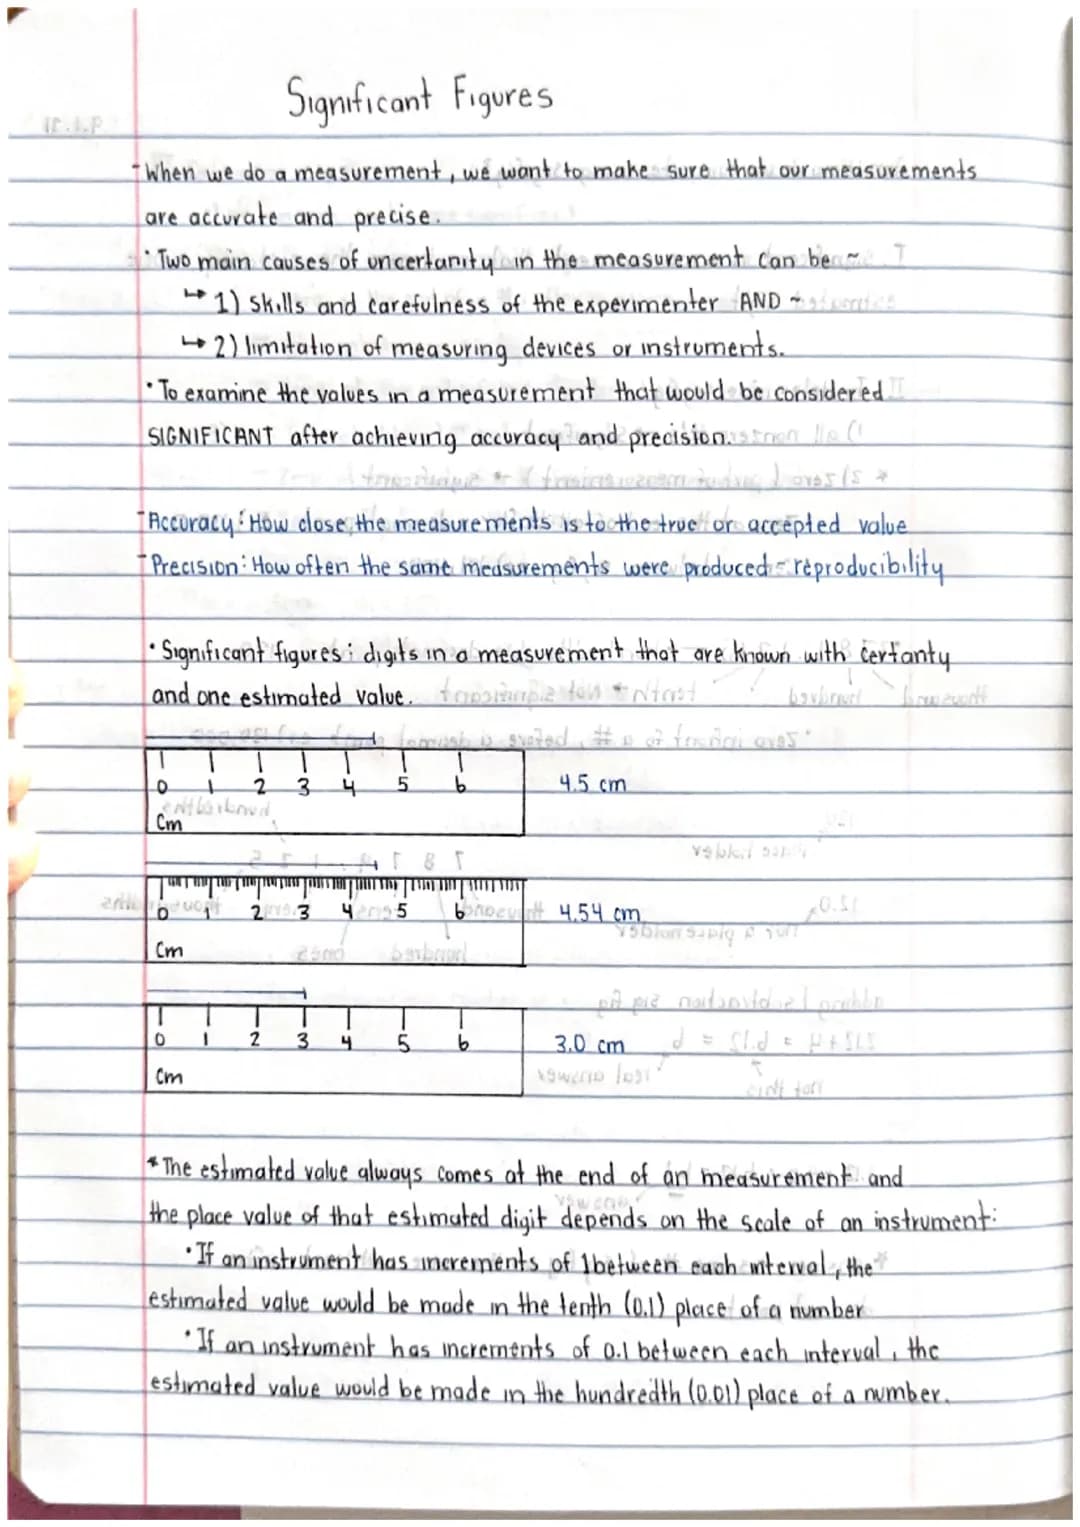 Significant Figures
- When we do a measurement, we want to make sure that our measurements
are accurate and precise.
• Two main causes of uncertanity in the measurement can be ~
↳ 1) skills and carefulness of the experimenter AND ~
↳ 2) limitation of measuring devices or instruments.
• To examine the values in a measurement that would be considered
SIGNIFICANT after achieving accuracy and precision.
- Accuracy: How close the measurements is to the true or accepted value
- Precision: How often the same measurements were produced = reproducibility
• Significant figures: digits in a measurement that are known with certanty
and one estimated value.
0 1 2 3 4 5 6
4.5 cm
Cm
0 1 2 3 4 5 6
4.54 cm
Cm
0 1 2 3 4 5 6
3.0 cm
Cm
* The estimated value always comes at the end of an measurement and
the place value of that estimated digit depends on the scale of an instrument:
• If an instrument has increments of 1 between each interval, the
estimated value would be made in the tenth (0.1) place of a number
• If an instrument has increments of 0.1 between each interval, the
estimated value would be made in the hundredth (0.01) place of a number.